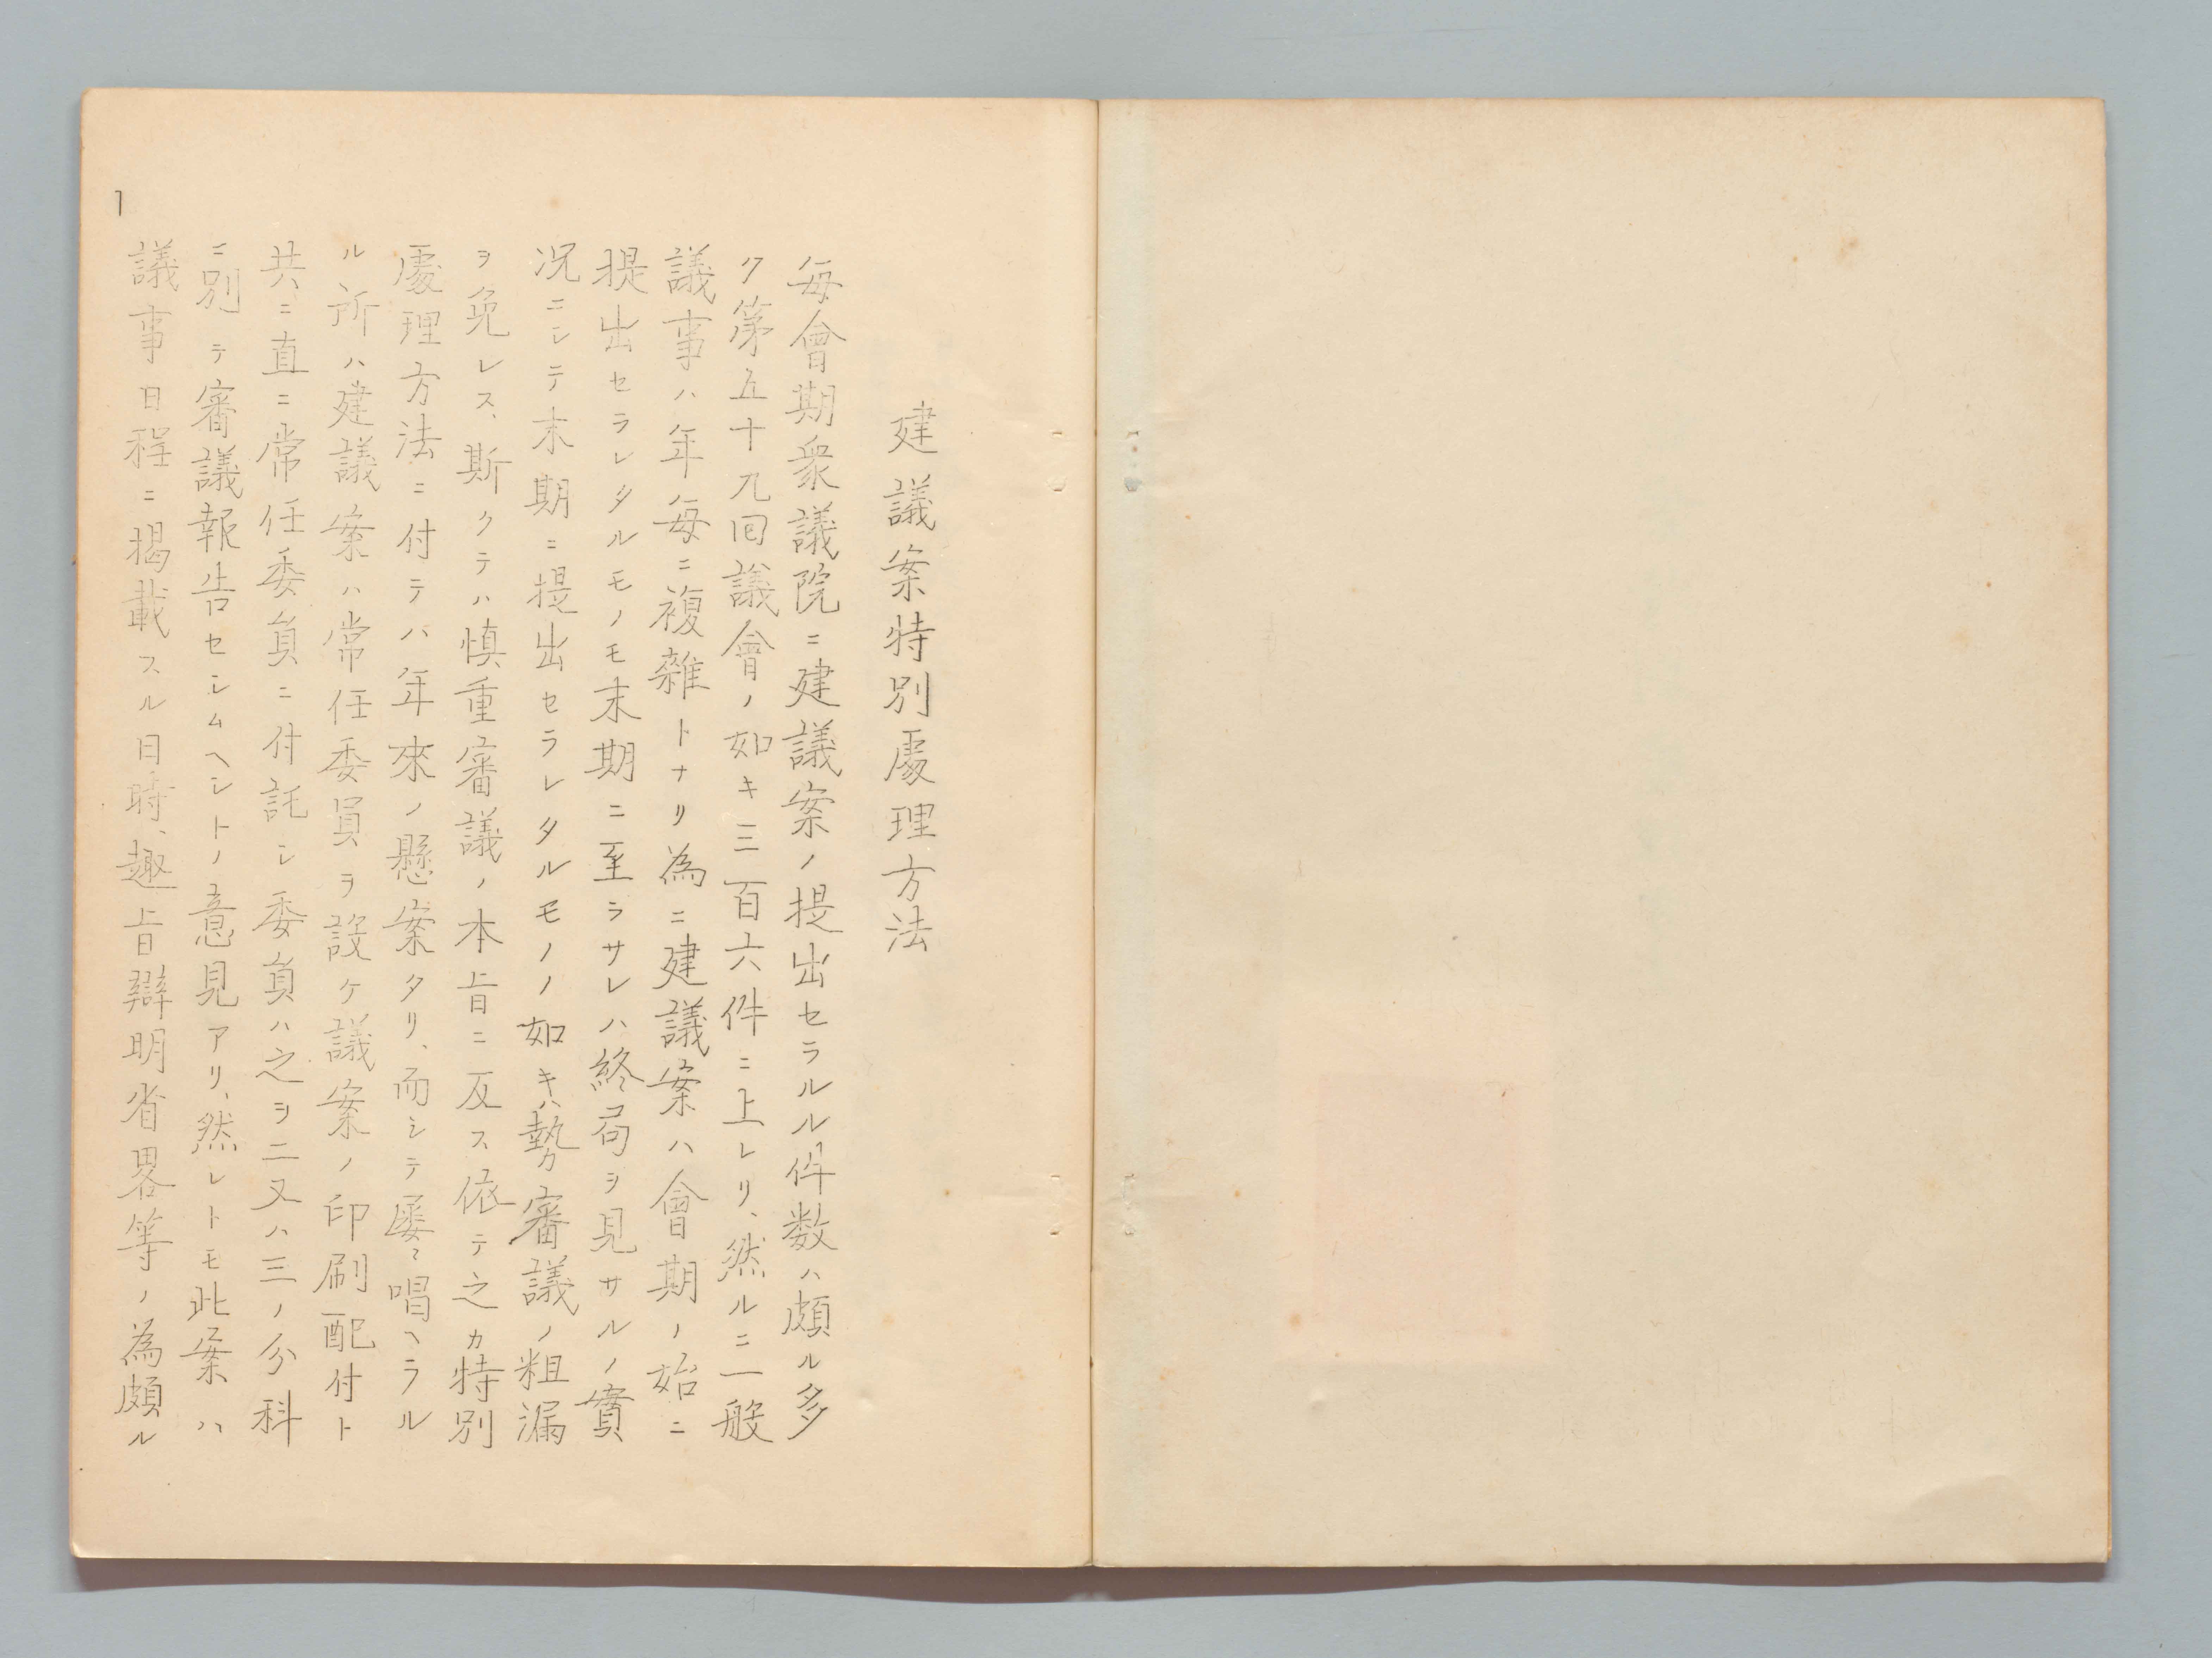 建議案特別處理方法
毎會期衆議院ニ建議案ノ提出セラルル件数ハ頗ル多
ク第五十九回議會ノ如キ三百六件ニ上レリ、然ルニ一般
議事ハ年毎ニ複雜トナリ為ニ建議案ハ會期ノ始ニ
提出セラレタルモノモ末期ニ至ラサレハ終局ヲ見サルノ實
況ニシテ末期ニ提出セラレタルモノノ如キハ勢審議ノ粗漏
ヲ免レス、斯クテハ慎重審議ノ本旨ニ反ス依テ之カ特別
處理方法ニ付テハ年來ノ懸案タリ、而シテ屡々唱ヘラル
ル所ハ建議案ハ常任委員ヲ設ケ議案ノ印刷配付ト
共ニ直ニ常任委員ニ付託シ委員ハ之ヲ二又ハ三ノ分科
ニ別テ審議報告セシムヘシトノ意見アリ、然レトモ此案ハ
議事日程ニ揭載スル日時、趣旨辯明省畧等ノ為頗ル
1